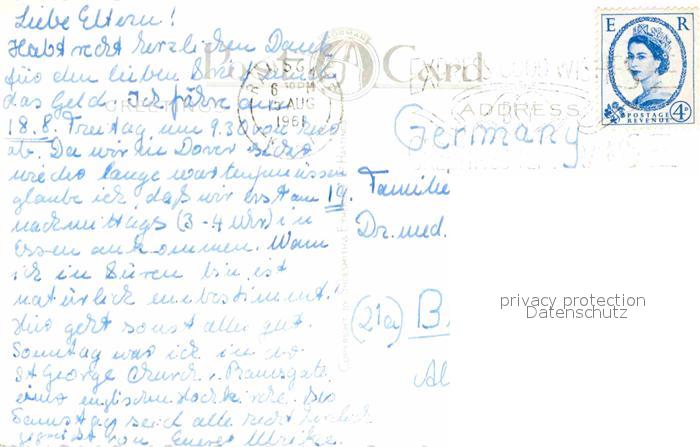 Liebe Eltern!
Habt recht herzlichen Dank
für den lieben Brief und
das Geld. Ich fahre am
18.8. Freitag um 9.30 von hier
ab. Da wir in Dover sicher
wieder lange warten müssen
glaube ich, daß wir erst am 19.
nachmittags (3-4 Uhr) in
Essen ankommen. Wann
ich in Büren bin, ist
natürlich unbestimmt.
Hier geht sonst alles gut.
Sonntag war ich in der
St George Church, Ramsgate,
eine englische Hochkirche. Bis
Samstag seid alle recht herzlich
gegrüßt von Eurer Ulrike.
Post Card
AUG
1961
ADDRESS
E R
POSTAGE
REVENUE
4D
Germany
Familie
Dr. med.
(21a) B
Al
privacy protection
Datenschutz